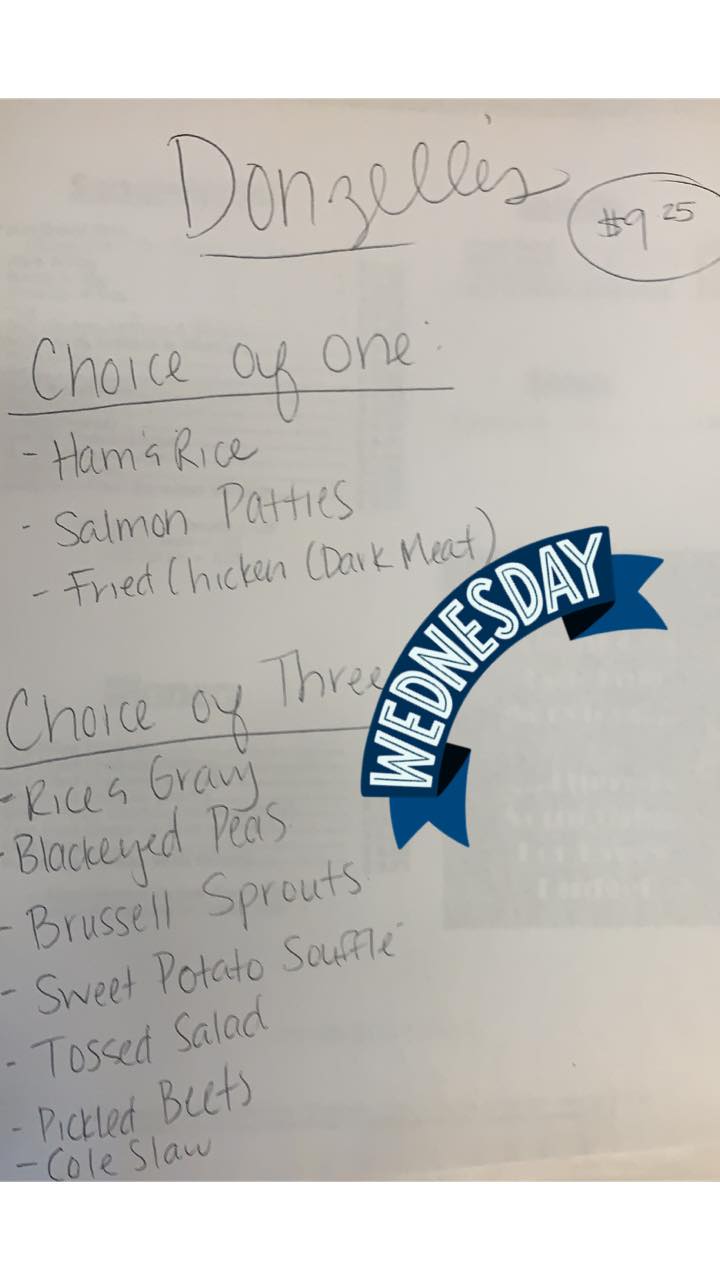 Donzelle's
$9 25
Choice of one:
- Ham & Rice
- Salmon Patties
- Fried Chicken (Dark Meat)
WEDNESDAY
Choice of Three
- Rice & Gravy
- Blackeyed Peas
- Brussell Sprouts
- Sweet Potato Souffle
- Tossed Salad
- Pickled Beets
- Cole Slaw